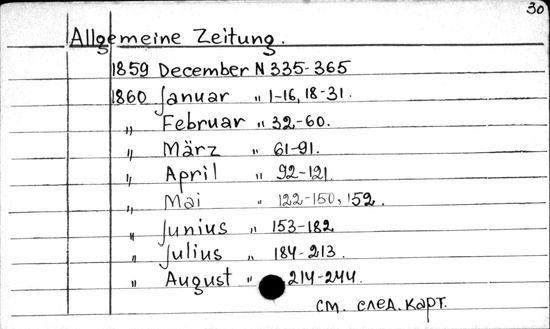 30
Allgemeine Zeitung.
1859 December N 335-365
1860 Januar „ 1-16, 18-31.
„ Februar „ 32-60.
„ März „ 61-91.
„ April „ 92-121
„ Mai „ 122-150, 152.
„ Junius „ 153-182
„ Julius „ 184-213.
„ August „ 214-244.
см. след. карт.